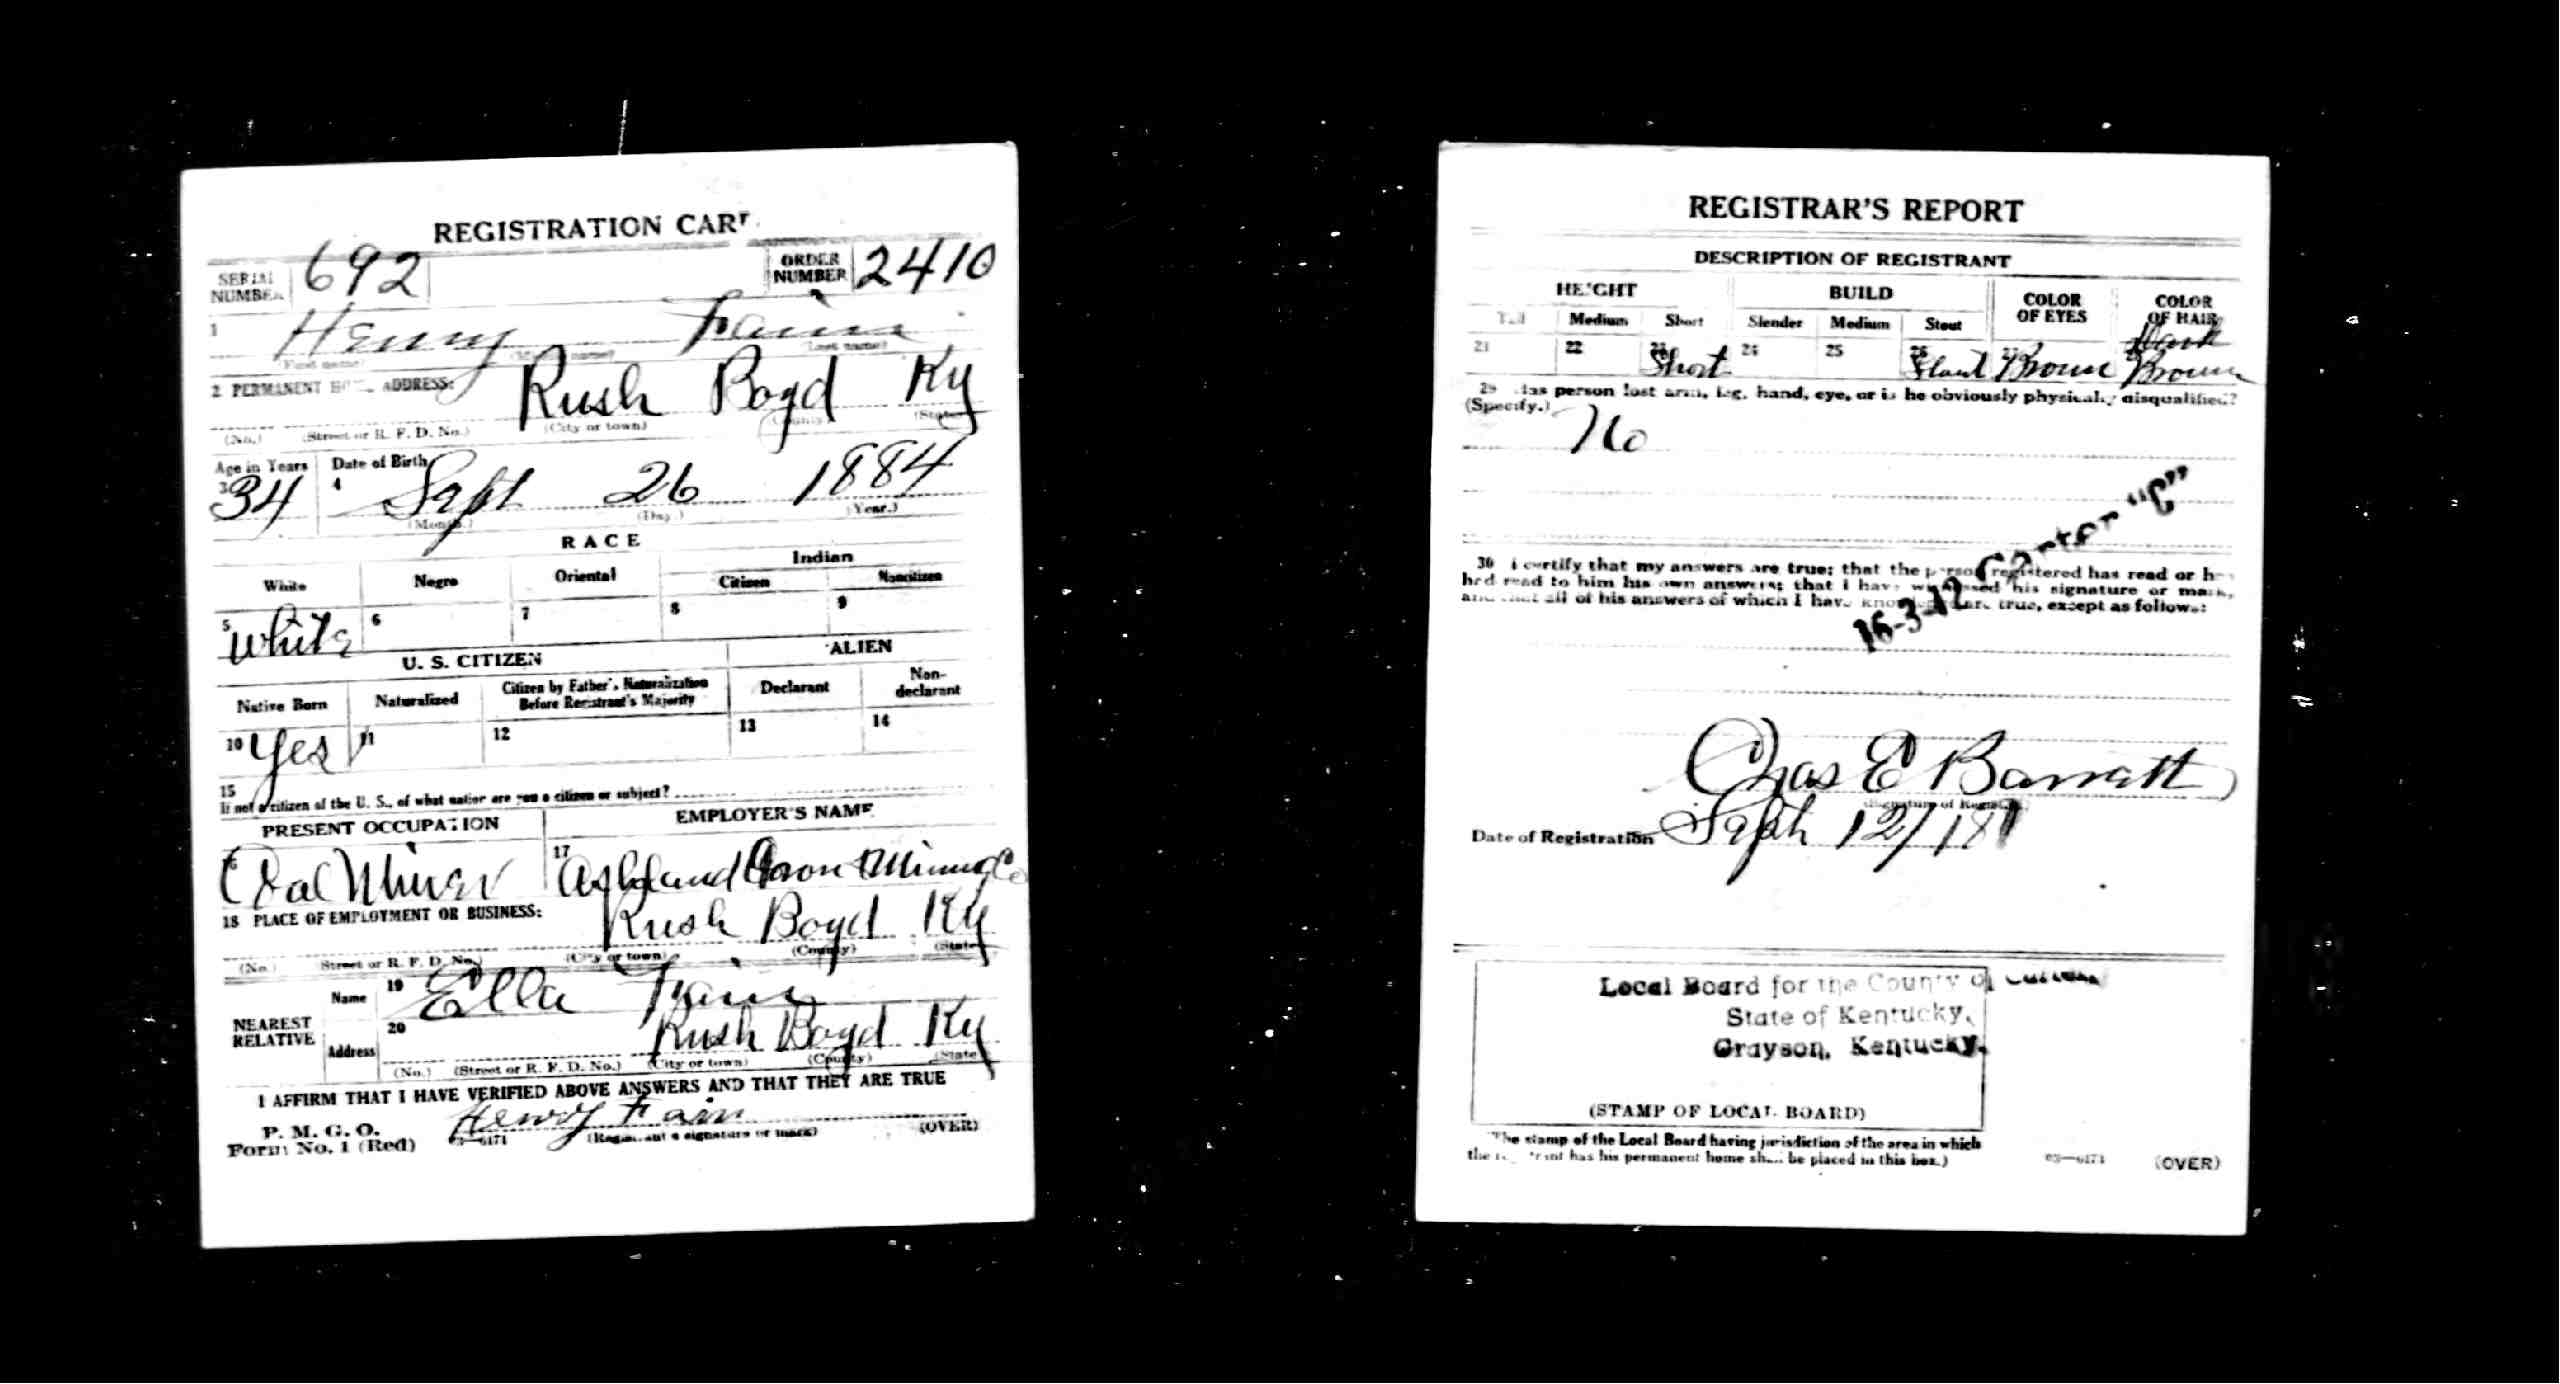 REGISTRATION CARD
SERIAL NUMBER 692 ORDER NUMBER 2410
1 Henry Fain
(First name) (Middle name) (Last name)
2 PERMANENT HOME ADDRESS:
Rush Boyd Ky
(No.) (Street or R. F. D. No.) (City or town) (County) (State)
Age in Years Date of Birth
3 34 4 Sept 26 1884
(Month.) (Day.) (Year.)
RACE
White Negro Oriental Indian
Citizen Noncitizen
5 White 6 7 8 9
U. S. CITIZEN ALIEN
Native Born Naturalized Citizen by Father's Naturalization Before Registrant's Majority Declarant Non-declarant
10 Yes 11 12 13 14
15
If not a citizen of the U. S., of what nation are you a citizen or subject?
PRESENT OCCUPATION EMPLOYER'S NAME
16 Coal Miner 17 Ashland Iron & Mining Co
18 PLACE OF EMPLOYMENT OR BUSINESS:
Rush Boyd Ky
(No.) (Street or R. F. D. No.) (City or town) (County) (State)
NEAREST RELATIVE Name 19 Ella Fain
Address 20 Rush Boyd Ky
(No.) (Street or R. F. D. No.) (City or town) (County) (State)
I AFFIRM THAT I HAVE VERIFIED ABOVE ANSWERS AND THAT THEY ARE TRUE
P. M. G. O.
Form No. 1 (Red) 03—6171 Henry Fain
(Registrant's signature or mark) (OVER)
REGISTRAR'S REPORT
DESCRIPTION OF REGISTRANT
HEIGHT BUILD COLOR OF EYES COLOR OF HAIR
Tall Medium Short Slender Medium Stout
21 22 23 Short 24 25 26 Stout 27 Brown Dark Brown
29 Has person lost arm, leg, hand, eye, or is he obviously physically disqualified?
(Specify.)
No
30 I certify that my answers are true; that the person registered has read or has
had read to him his own answers; that I have witnessed his signature or mark,
and that all of his answers of which I have knowledge are true, except as follows:
16-3-12 Carter "C"
Chas E Barratt
(Signature of Registrar)
Date of Registration Sept 12/18
Local Board for the County of Carter,
State of Kentucky,
Grayson, Kentucky.
(STAMP OF LOCAL BOARD)
(The stamp of the Local Board having jurisdiction of the area in which
the registrant has his permanent home shall be placed in this box.)
03—6171 (OVER)